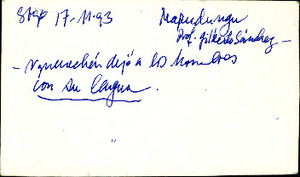 17-11-93 Mapudungu
Prof. Gilberto Sánchez –
– Ngenechén dejó a los hombres
con su lengua.